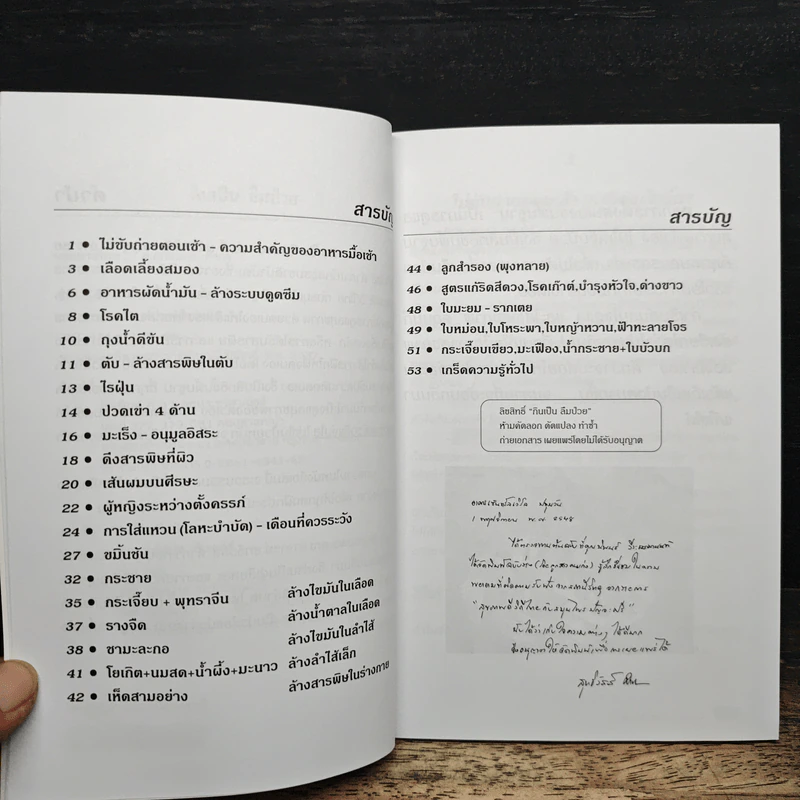 สารบัญ
1 ● ไม่ขับถ่ายตอนเช้า - ความสำคัญของอาหารมื้อเช้า
3 ● เลือดเลี้ยงสมอง
6 ● อาหารผัดน้ำมัน - ล้างระบบดูดซึม
8 ● โรคไต
10 ● ถุงน้ำดีข้น
11 ● ตับ - ล้างสารพิษในตับ
13 ● ไรฝุ่น
14 ● ปวดเข่า 4 ด้าน
16 ● มะเร็ง - อนุมูลอิสระ
18 ● ดึงสารพิษที่ผิว
20 ● เส้นผมบนศีรษะ
22 ● ผู้หญิงระหว่างตั้งครรภ์
24 ● การใส่แหวน (โลหะบำบัด) - เดือนที่ควรระวัง
27 ● ขมิ้นชัน
32 ● กระชาย
35 ● กระเจี๊ยบ + พุทราจีน ล้างไขมันในเลือด
37 ● รางจืด ล้างน้ำตาลในเลือด
38 ● ชามะละกอ ล้างไขมันในลำไส้
41 ● โยเกิต+นมสด+น้ำผึ้ง+มะนาว ล้างลำไส้เล็ก
42 ● เห็ดสามอย่าง ล้างสารพิษในร่างกาย
สารบัญ
44 ● ลูกสำรอง (พุงทลาย)
46 ● สูตรแก้ริดสีดวง,โรคเก๊าต์,บำรุงหัวใจ,ด่างขาว
48 ● ใบมะยม - รากเตย
49 ● ใบหม่อน,ใบโหระพา,ใบหญ้าหวาน,ฟ้าทะลายโจร
51 ● กระเจี๊ยบเขียว,มะเฟือง,น้ำกระชาย+ใบบัวบก
53 ● เกร็ดความรู้ทั่วไป
ลิขสิทธิ์ "กินเป็น ลืมป่วย"
ห้ามคัดลอก ดัดแปลง ทำซ้ำ
ถ่ายเอกสาร เผยแพร่โดยไม่ได้รับอนุญาต
1 พฤศจิกายน พ.ศ. 2548